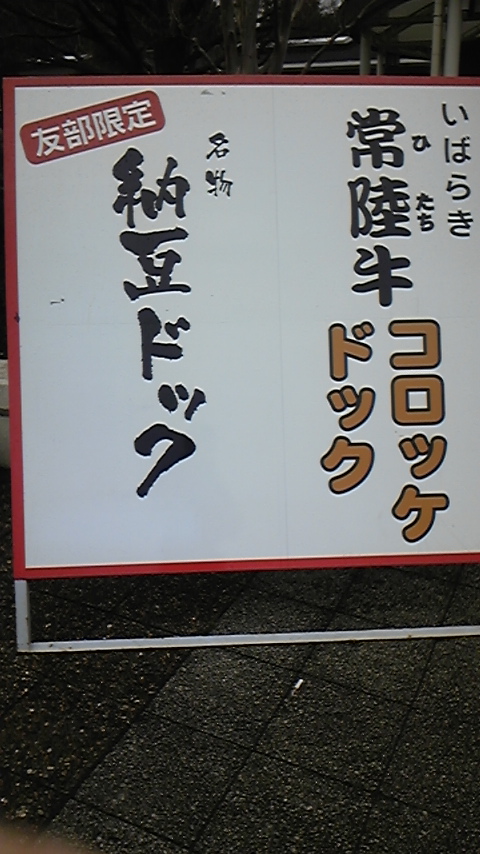 いばらき
常陸牛
ひたち
コロッケ
ドック
友部限定
名物
納豆ドック